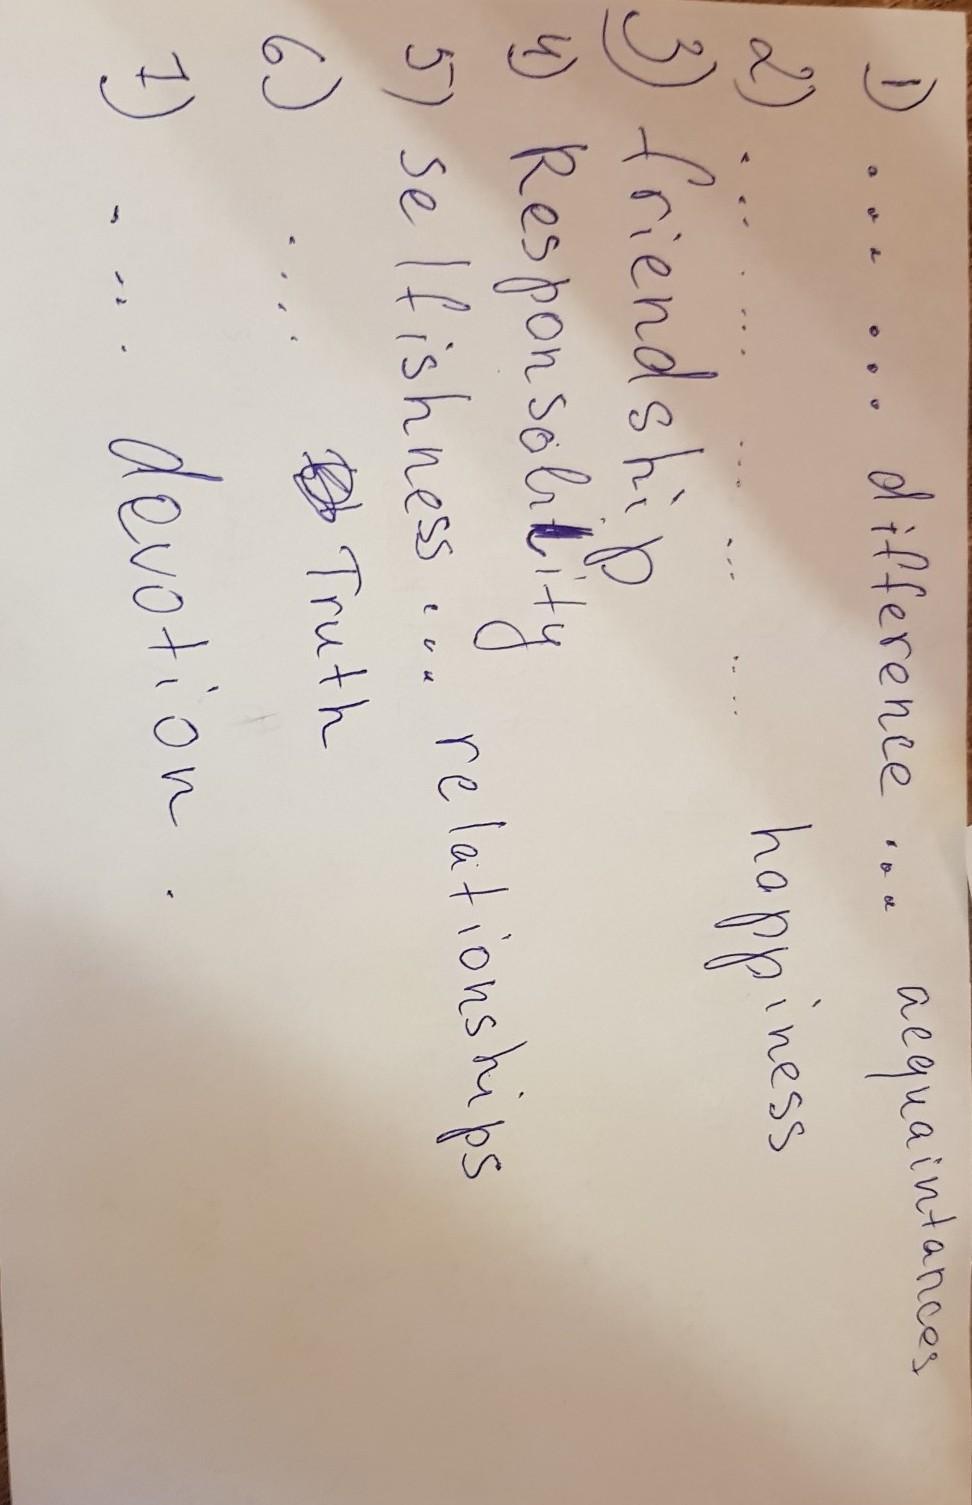 1) .... ... difference ... acquaintances
2) ... .... ... ... .... happiness
3) friendship
4) Responsolility
5) selfishness ... relationships
6) .... Truth
7) .... devotion.